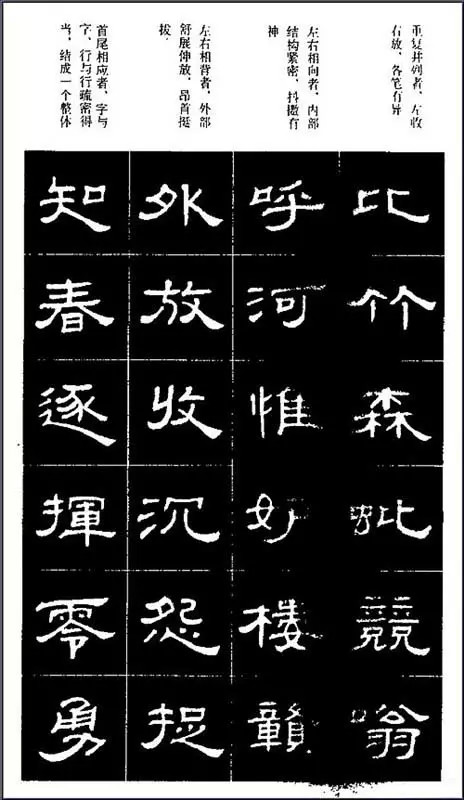 重复并列者，左收
右放，各笔有异
左右相向者，内部
结构紧密，抖擞有
神
左右相背者，外部
舒展伸放，昂首挺
拔。
首尾相应者，字与
字、行与行疏密得
当，结成一个整体
比竹森競嗡
呼河惟
外放收沉怨
知春逐揮零勇